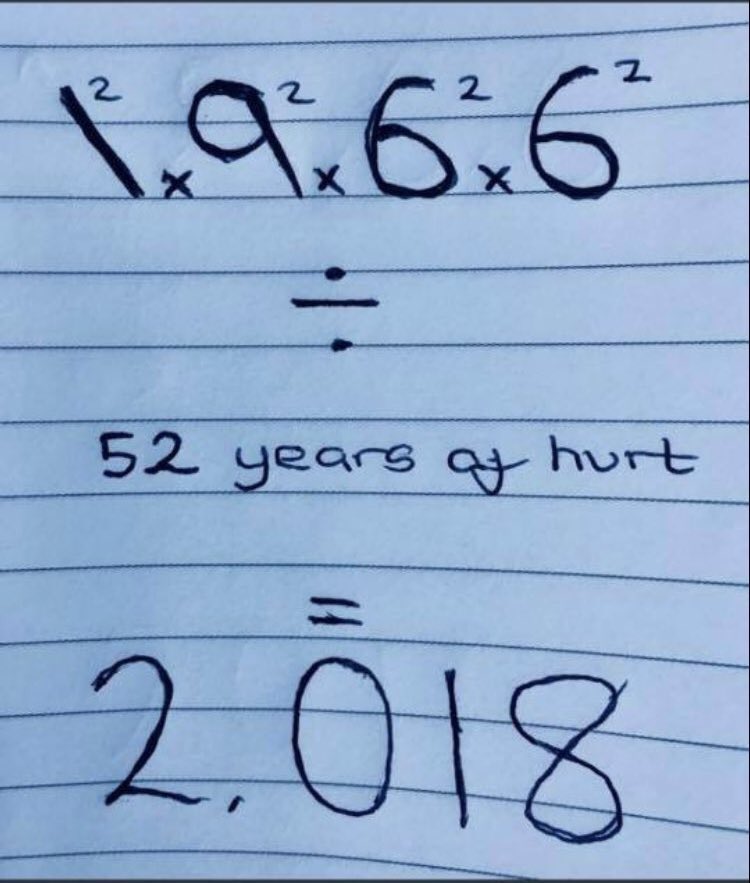 1² x 9² x 6² x 6²
÷
52 years of hurt
=
2.018